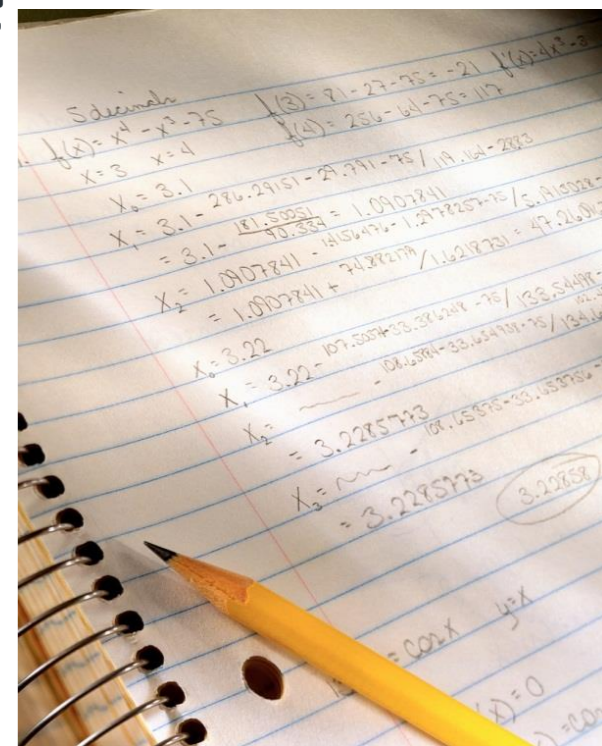 5 decimals
1. f(x) = x⁴ - x³ - 75 f(3) = 81 - 27 - 75 = -21 f'(x) = 4x³ - 3
x = 3 x = 4 f(4) = 256 - 64 - 75 = 117
x₀ = 3.1
x₁ = 3.1 - 286.29151 - 29.791 - 75 / 119.164 - 2883
= 3.1 - 181.50051 / 90.334 = 1.0907841
x₂ = 1.0907841 - 1.4156476 - 1.2978257 - 75 / 5.1915028 -
= 1.0907841 + 74.882179 / 1.6218731 = 47.2609
x₀ = 3.22
x₁ = 3.22 - 107.5037 - 33.386248 - 75 / 133.54498 -
x₂ = - 108.6584 - 33.654938 - 75 / 134.6
= 3.2285773
x₃ = - 108.65375 - 33.653756 -
= 3.2285773 3.22858
= cos x y = x
(x) = 0
) = cos